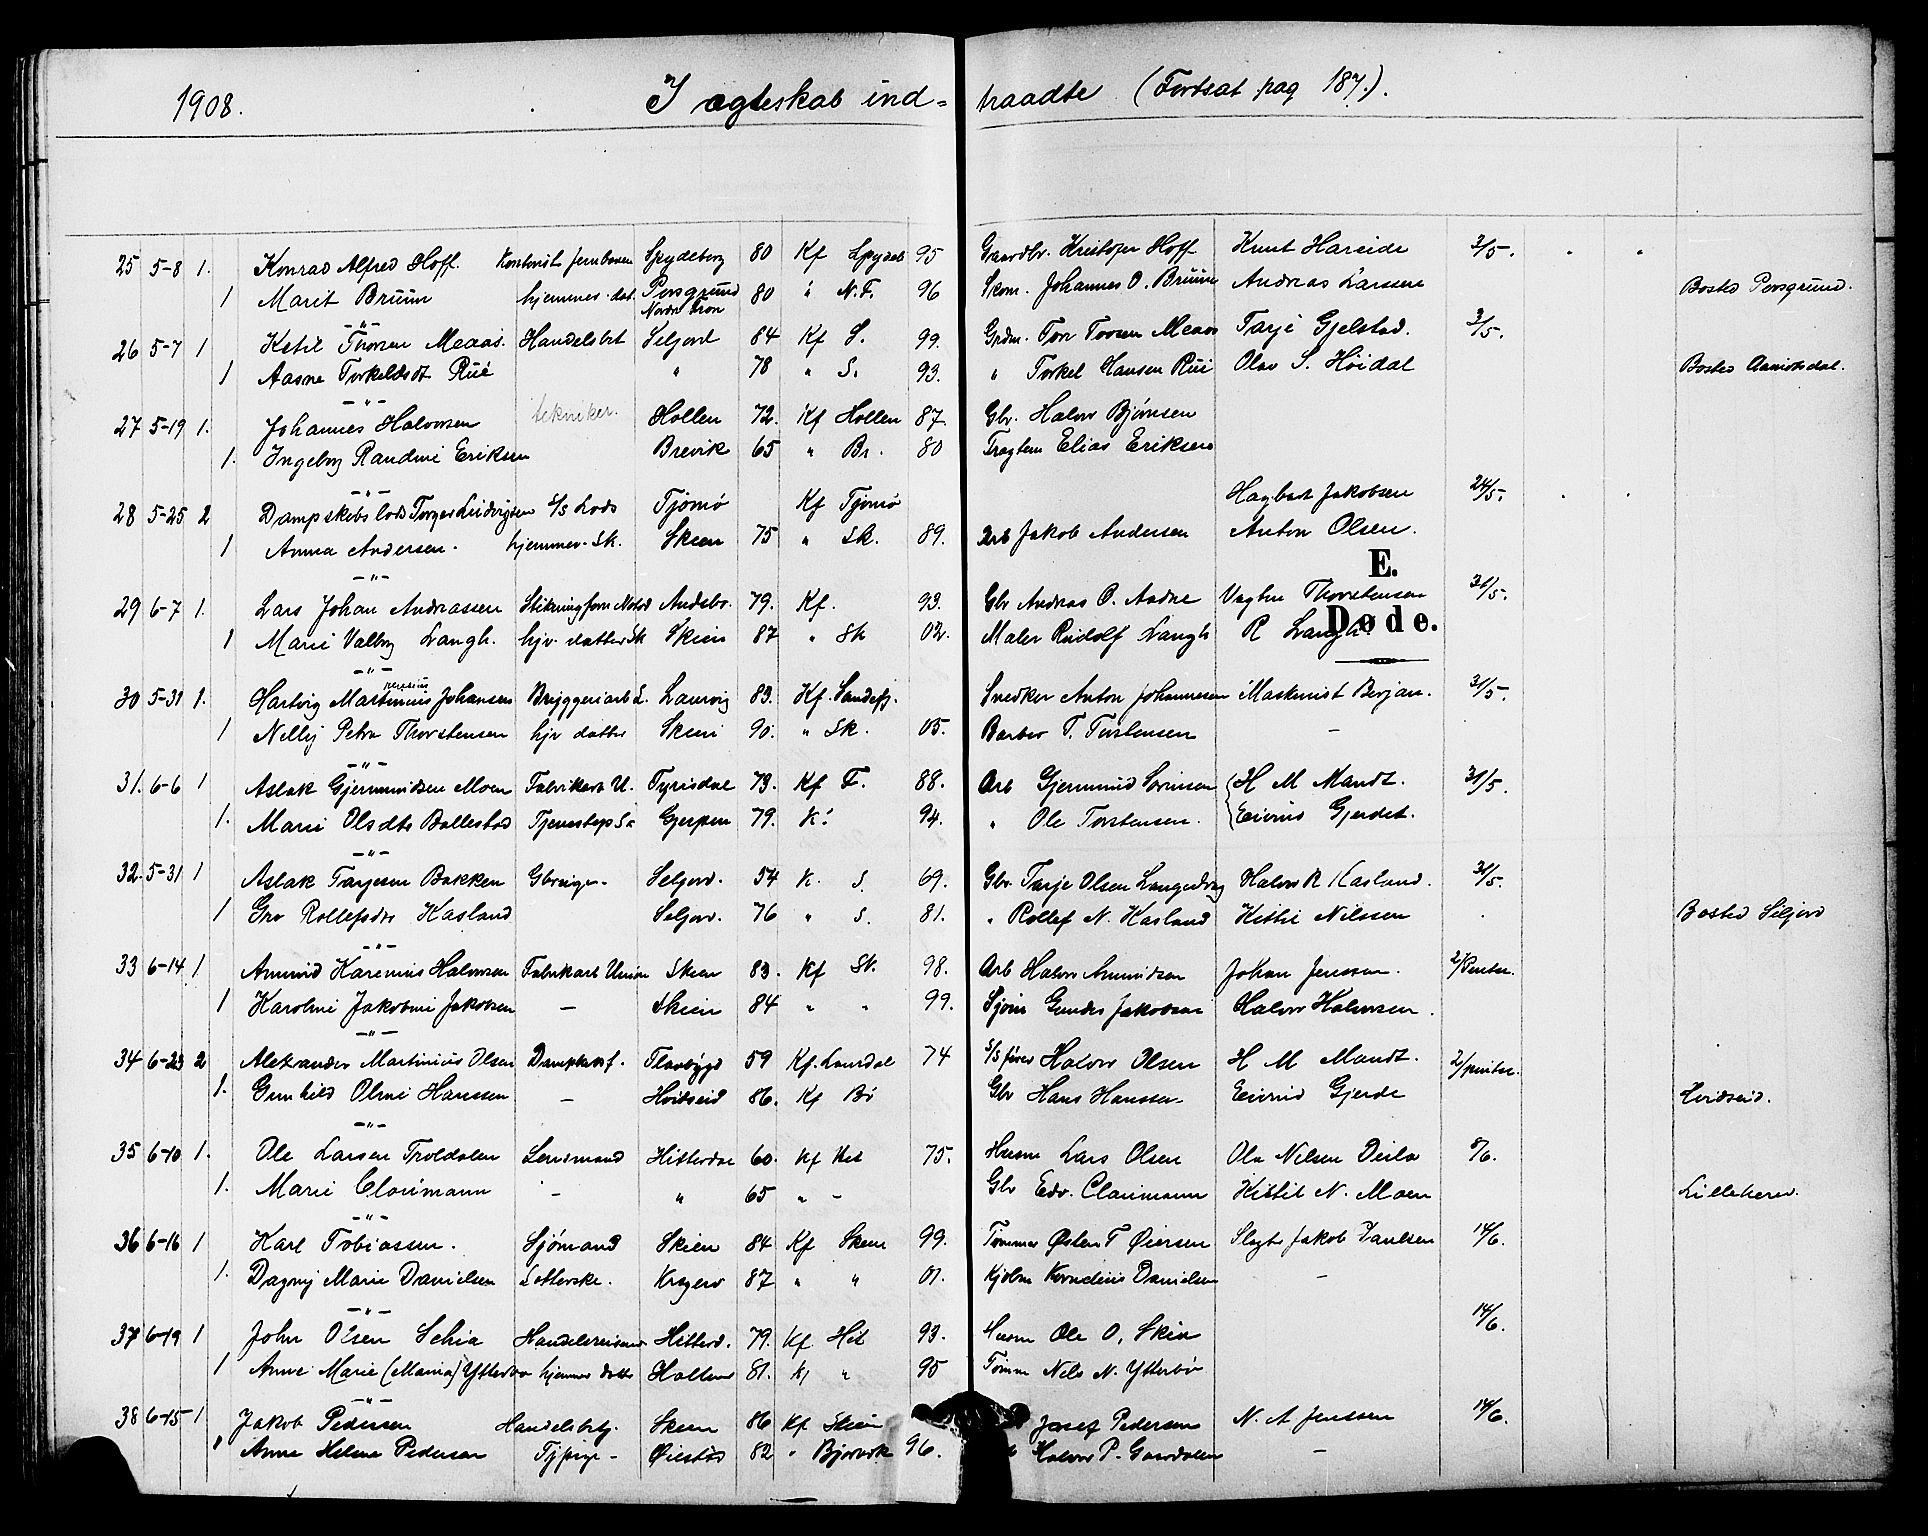 1908. I ægteskab ind= traadte (Fortsat pag 187.).
25 5-8 1. Konrad Alfred Hoff. Kontorist Jernbanen Spydeberg 80 Kf Spydeb 95 Gaardbr. Kristofer Hoff Knut Hareide 3/5.
1 Marit Bruun hjemmev. dat. Porsgrund 80 " N.F. 96 Skom. Johannes O. Bruun Andreas Larssen Bosted Porsgrund.
Nordre Fron
-"-
26 5-7 1 Ketil Thorsen Meaas. Handelsbt Seljord 84 Kf S. 99. Grdm. Tor Torsen Meaas Tarje Gjelstad. 3/5.
1 Aasne Torkelsdt Rui " 78 " S. 93. " Torkel Hansen Rui Olav S. Høidal Bosted Aamotsdal.
-"-
27 5-19 1. Johannes Halvorsen tekniker. Hollen 72. Kf Hollen 87. Gbr. Halvor Bjørnsen
1. Ingeborg Randine Eriksen Brevik 65 " Br. 80 Elias Eriksen
-"-
28 5-25 2 Dampskibslods Torger Ludvigsen S/S Lods Tjømø Kf Tjømø Hagbart Jakobsen 24/5.
1 Anna Andersen. hjemmev. Sk. Skien 75 " Sk. 89. Arb Jakob Andersen Anton Olsen.
E.
-"-
29 6-7 1. Lars Johan Andreassen Andebo. 79. Kf. 93. Gbr Andreas O. Aadne Vagtm Thorstensen 31/5.
Døde.
1 Marie Valborg Langh. hjv. datter Sk Skien 87 " Sk 02. Maler Rudolf Langh R Langh.
-"-
30 5-31 1. Hartvig Martinius Johansen Bryggeriarb L. Laurvig 83. Kf. Sandefj. Snedker Anton Johannesen Maskinist Berjan. 31/5.
1 Nelly Petra Thorstensen hjv datter Skien 90. " Sk. 05. Barber T. Torstensen -
-"-
31. 6-6 1 Aslak Gjermundsen Moen Fabrikarb U. Tyrisdal 73. Kf F. 88. Arb Gjermund Sørensen H M Mandt. 31/5.
1. Marie Olsdtr Ballestad Gjerpen 79. K! 94. " Ole Torstensen. Eivind Gjerdet.
-"-
32. 5-31 1 Aslak Tarjesen Bakken Seljord. 54 K. S. 69. Gbr Tarje Olsen Langedrag Halvor R Kasland. 31/5.
1 Gro Rollefsdtr Kasland Seljor. 76 " S. 81. " Rollef N. Kasland Kittil Nilssen Bosted Seljord
-"-
33 6-14 1 Amund Karenius Halvorsen Fabrikarb Union Skien 83. Kf Sk. 98. Arb Halvor Amundsen Johan Jenssen. 2/Pintse.
1 Karoline Jakobine Jakobsen - Skien 84 " " 99. Sjøm Gunder Jakobsen Halvor Halvorsen.
-"-
34 6-23 2 Alexander Martinius Olsen Dampskibsf. Flaabygd 59 Kf. Laurdal 74 S/S fører Halvor Olsen H M Mandt. 2/pintse.
1. Gunhild Oline Hanssen - Hvitseid 86. Kf Bø Gbr Hans Hanssen Eivind Gjerde Hvidseid.
-"-
35 6-10 1. Ole Larsen Troldalen Lensmand Hitterdal 60. Kf Hit 75. Husm Lars Olsen Ola Nilsen Deila 8/6.
1. Marie Clarimann - " 65 " - Gbr Edv. Clarimann Kittil N. Moen Lilleherad.
-"-
36 6-16 1 Karl Tobiassen. Sjømand Skien 84 Kf Skien 99. Tømmer Østen T Øiersen Slagt Jakob Paulsen 14/6.
1. Dagny Marie Danielsen Kragerø 87 " " 01. Kjølm Kornelius Danielsen -
-"-
37 6-19 1 John Olsen Schia Handelsreisende Hitterd. 79. Kf Hit 93. Husm Ole O. Skia 14/6.
1 Anne Marie (Maria) Ytterbø hjemmev datter Hollen 81. Kf " 95 Tømm Nils N. Ytterbø
-"-
38 6-15 1 Jakob Pedersen Handelsbetj. Skien 86 Kf Skien Josef Pedersen N. A Jenssen 14/6.
1 Anne Helene Pedersen Tjpige - Øiestad 82 " Bjorvik 96. Halvor P. Gaardalen -